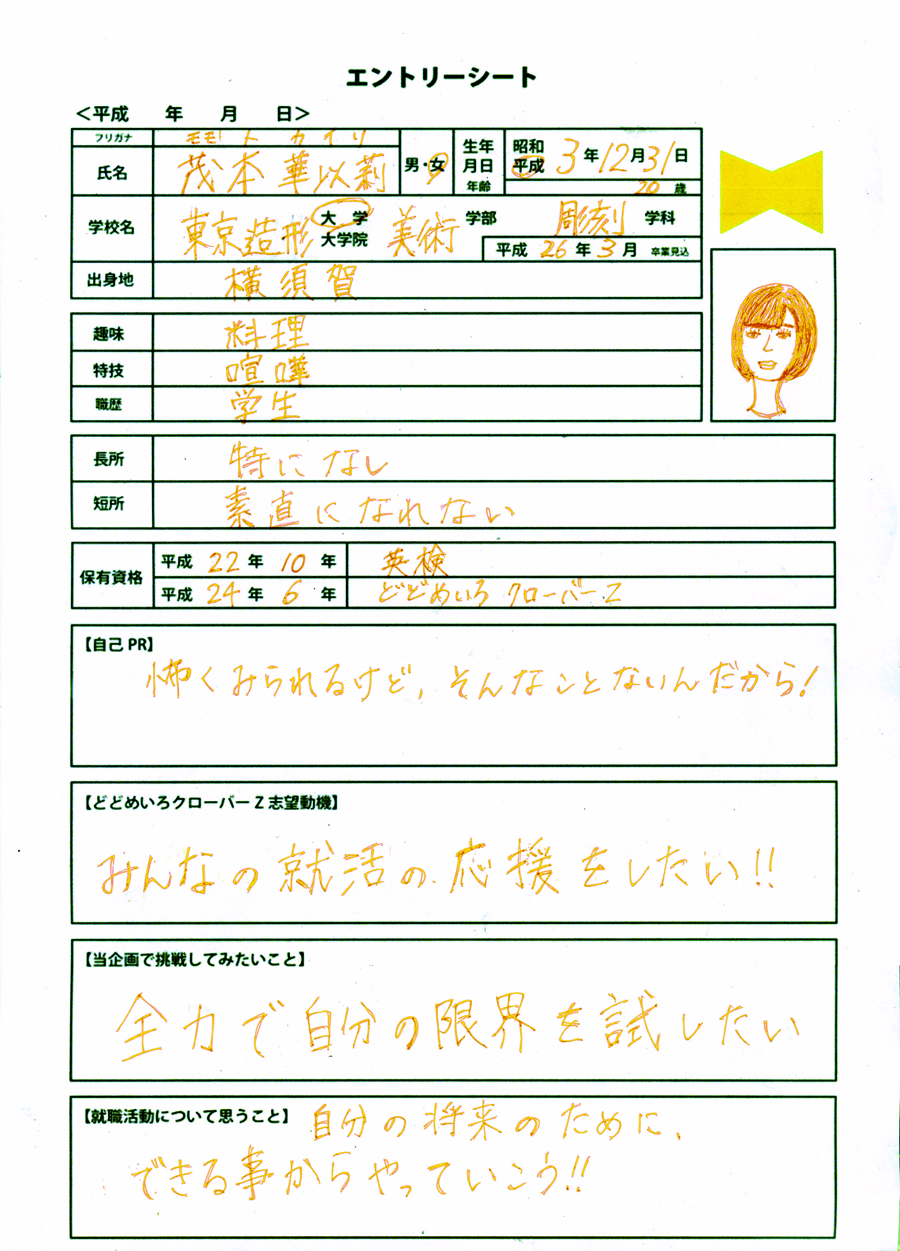 エントリーシート
<平成 年 月 日>
フリガナ モモト カイリ
氏名 茂本華以莉 男・女 生年月日 年齢 昭和 平成 3年12月31日
20歳
学校名 東京造形 大学 大学院 美術 学部 彫刻 学科
平成 26年3月 卒業見込
出身地 横須賀
趣味 料理
特技 喧嘩
職歴 学生
長所 特になし
短所 素直になれない
保有資格 平成 22年 10年 英検
平成 24年 6年 どどめいろクローバーZ
【自己PR】
怖くみられるけど、そんなことないんだから!
【どどめいろクローバーZ志望動機】
みんなの就活の応援をしたい!!
【当企画で挑戦してみたいこと】
全力で自分の限界を試したい
【就職活動について思うこと】 自分の将来のために、
できる事からやっていこう!!